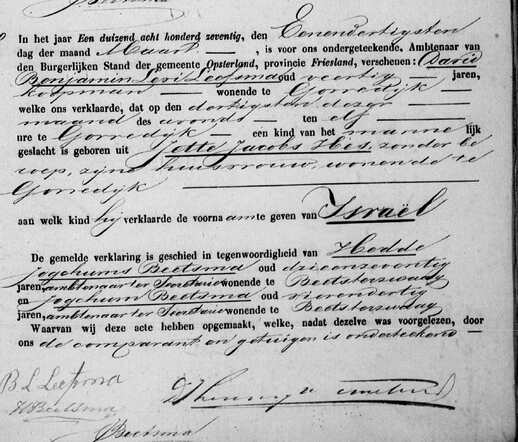 Beetsma
In het jaar Een duizend acht honderd zeventig, den Eenendertigsten
dag der maand Maart, is voor ons ondergeteekende, Ambtenaar van
den Burgerlijken Stand der gemeente Opsterland, provincie Friesland, verschenen: David
Benjamin Levi Leefsma oud veertig jaren,
koopman wonende te Gorredijk
welke ons verklaarde, dat op den dertigsten dezer
maand des avonds ten elf
ure te Gorredijk een kind van het manne lijk
geslacht is geboren uit Jette Jacobs Hes, zonder be
roep, zijne huisvrouw, wonende te
Gorredijk
aan welk kind hij verklaarde de voornaam te geven van Israël
De gemelde verklaring is geschied in tegenwoordigheid van Hedde
Jogchums Beetsma oud drieenzeventig
jaren, ambtenaar ter Secretarie wonende te Beetsterzwaag
en Jogchum Beetsma oud vierendertig
jaren, ambtenaar ter Secretarie wonende te Beetsterzwaag
Waarvan wij deze acte hebben opgemaakt, welke, nadat dezelve was voorgelezen, door
ons de comparant en getuigen is onderteekend
B L Leefsma
H Beetsma
Beetsma